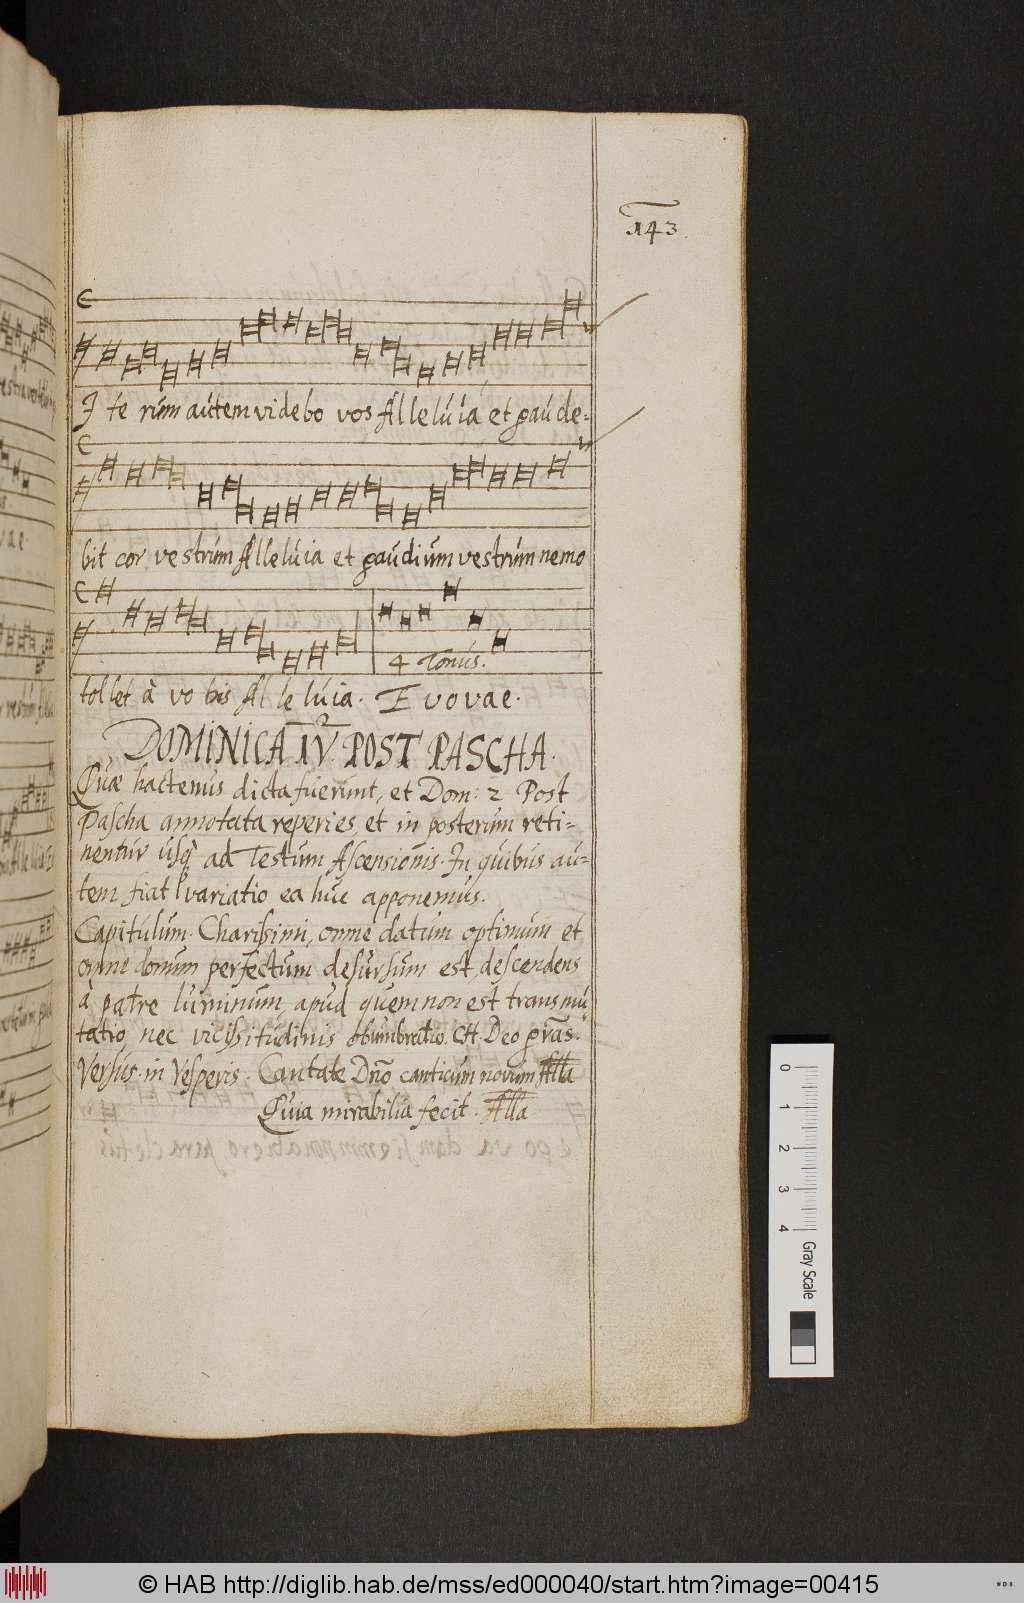 143.
Iterum autem videbo vos Alleluia et gaude-
bit cor vestrum Alleluia et gaudium vestrum nemo
4 Tonus.
tollet à vobis Alleluia. Evovae.
DOMINICA IV. POST PASCHA.
Quæ hactenus dicta fuerunt, et Dom: 2 Post
Pascha annotata reperies, et in posterum reti-
nentur usq̀ ad Festum Ascensionis. In quibus au-
tem fiat variatio ea huc apponemus.
Capitulum. Charissimi, omne datum optimum et
omne donum perfectum desursum est, descendens
à patre luminum, apud quem non est transmu-
tatio, nec vicissitudinis obumbratio. Deo gr̃as.
Versus in Vesperis. Cantate Dño canticum novum Alla
Quia mirabilia fecit. Alla
0
1
2
3
4
Gray Scale
© HAB http://diglib.hab.de/mss/ed000040/start.htm?image=00415